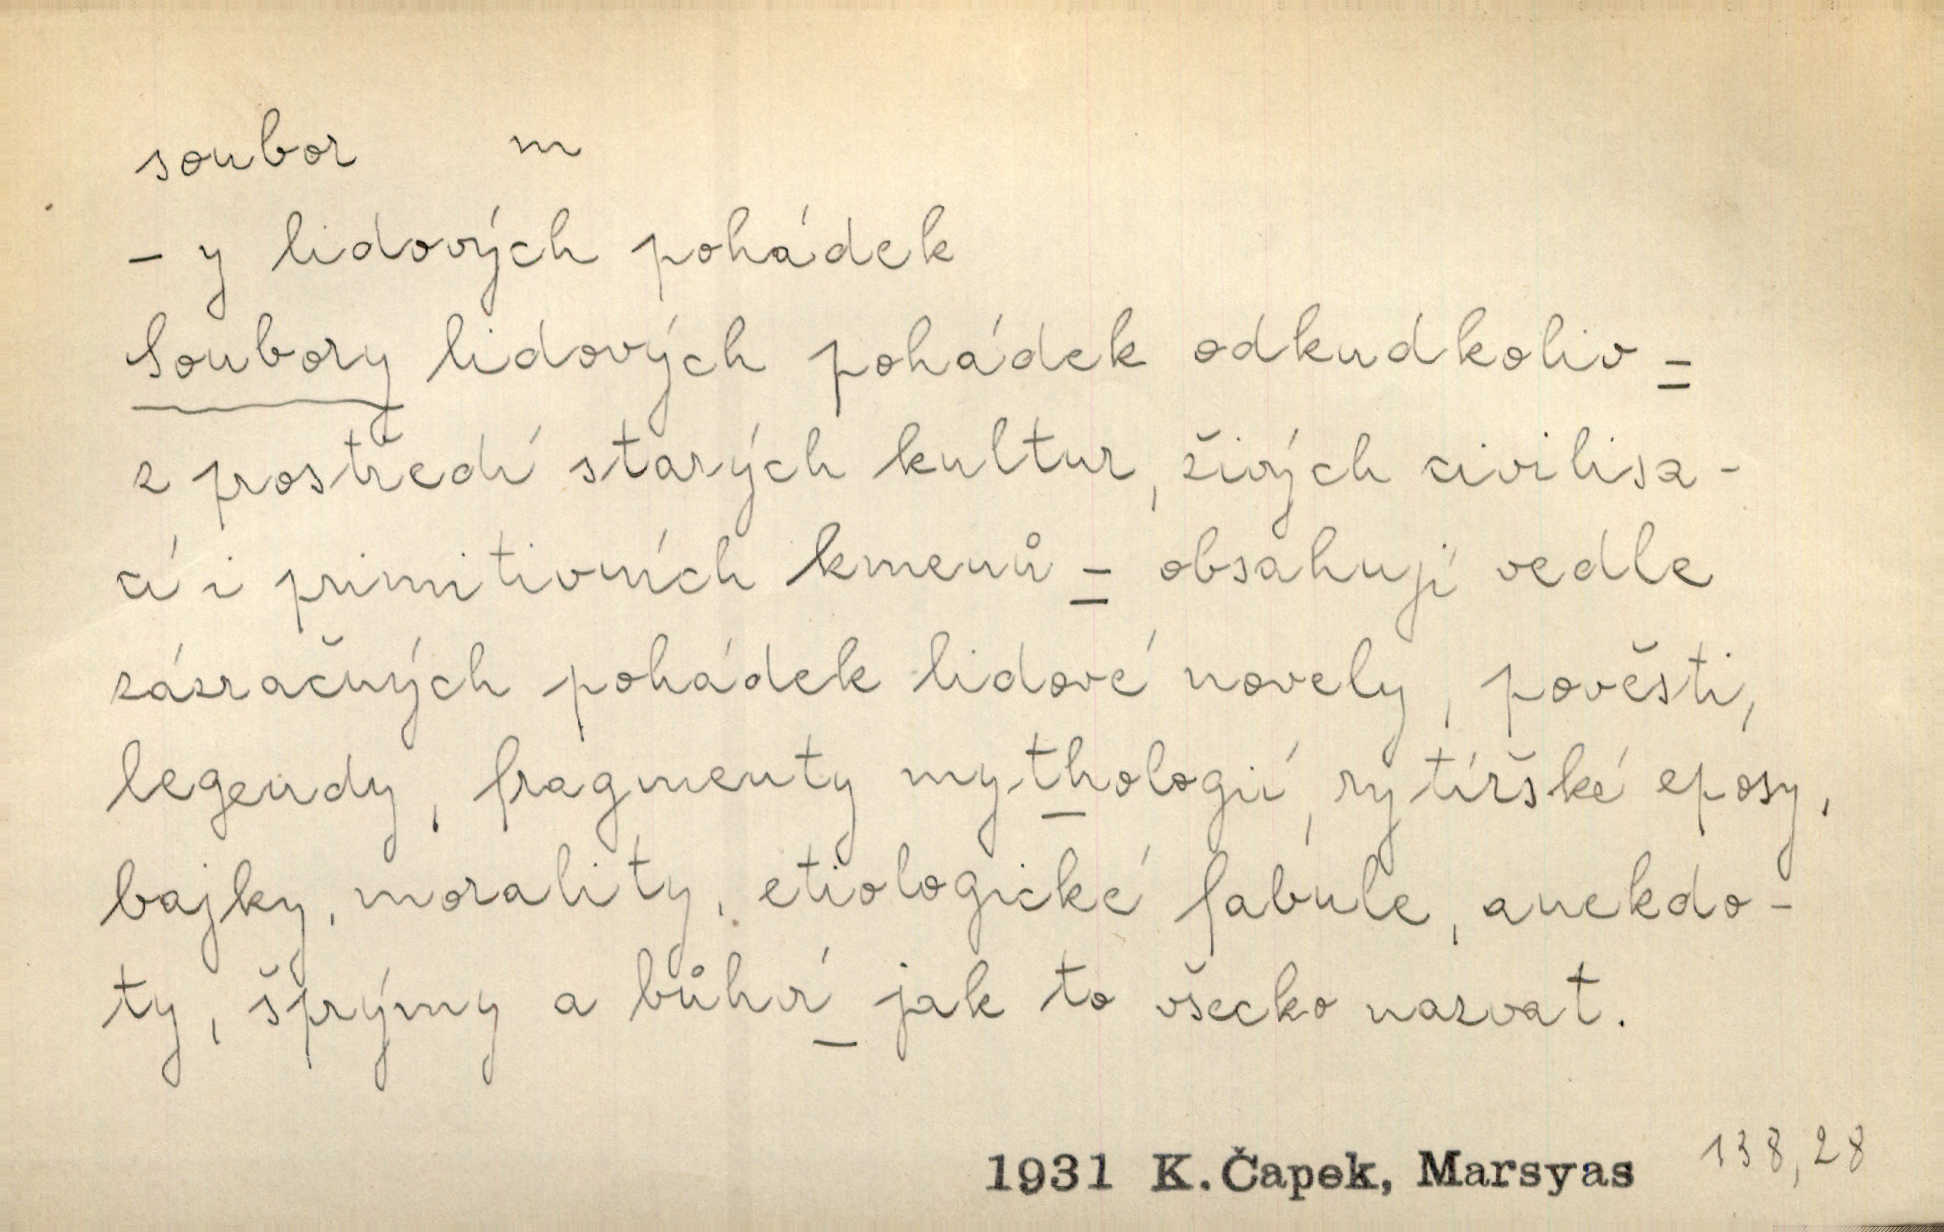 soubor m
- y lidových pohádek
Soubory lidových pohádek odkudkoliv =
z prostředí starých kultur, živých civilisa-
cí i primitivních kmenů = obsahují vedle
zázračných pohádek lidové novely, pověsti,
legendy, fragmenty mythologií, rytířské eposy,
bajky, morality, etiologické fabule, anekdo-
ty, šprýmy a bůhví jak to všecko nazvat.
1931 K. Čapek, Marsyas 138,28